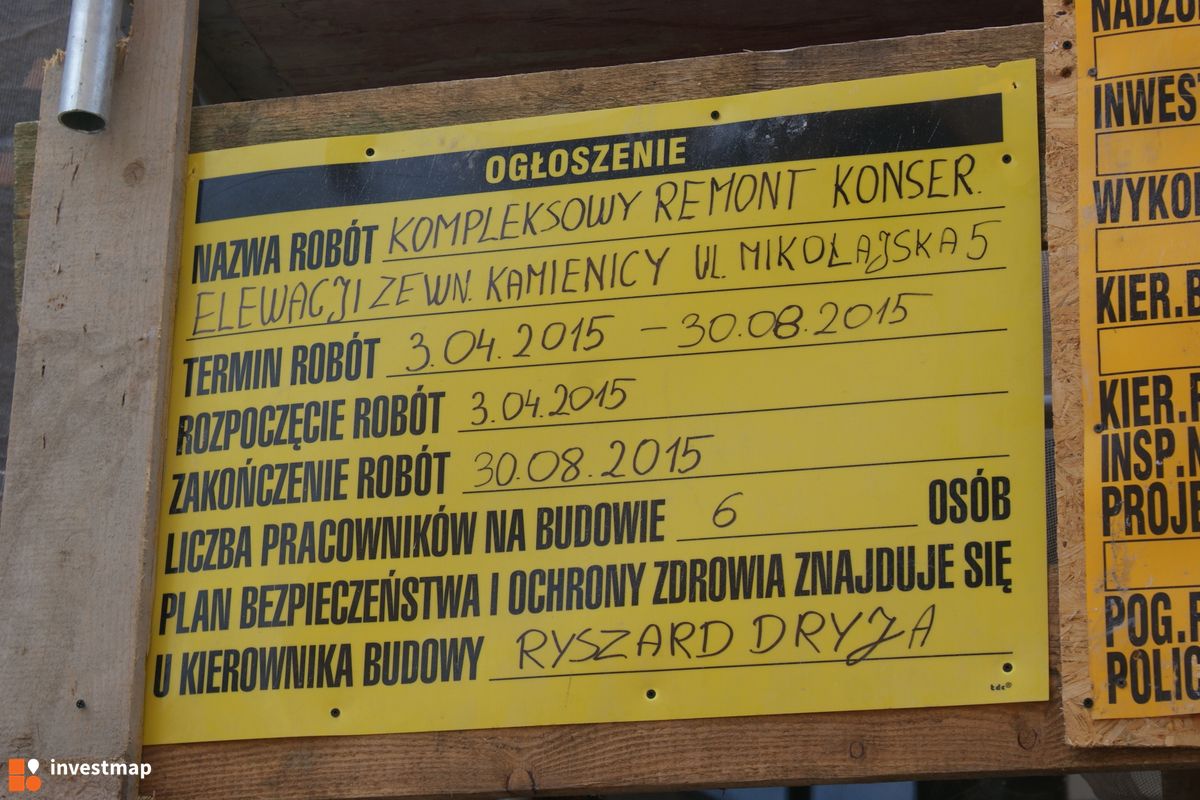 OGŁOSZENIE
NAZWA ROBÓT KOMPLEKSOWY REMONT KONSER.
ELEWACJI ZEWN. KAMIENICY UL. MIKOŁAJSKA 5
TERMIN ROBÓT 3.04.2015 - 30.08.2015
ROZPOCZĘCIE ROBÓT 3.04.2015
ZAKOŃCZENIE ROBÓT 30.08.2015
LICZBA PRACOWNIKÓW NA BUDOWIE 6 OSÓB
PLAN BEZPIECZEŃSTWA I OCHRONY ZDROWIA ZNAJDUJE SIĘ
U KIEROWNIKA BUDOWY RYSZARD DRYJA
tdc®
NADZO
INWEST
WYKO
KIER.B
KIER.R
INSP.N
PROJE
POG.R
POLIC
investmap